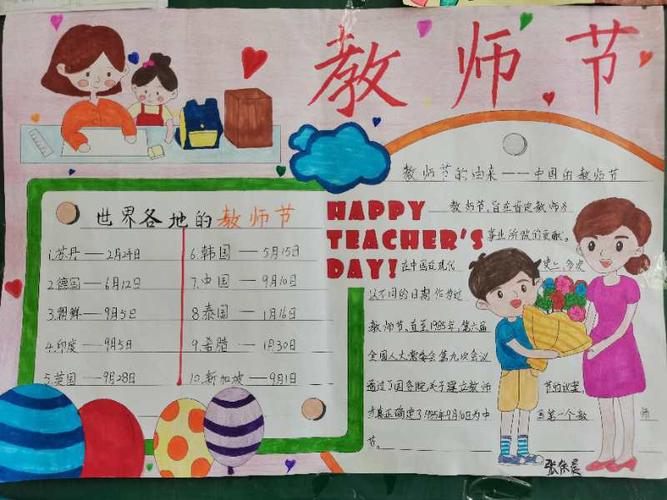 教师节
世界各地的教师节
1.苏丹——2月24日
2.德国——6月12日
3.朝鲜——9月5日
4.印度——9月5日
5.英国——9月28日
6.韩国——5月15日
7.中国——9月10日
8泰国——1月16日
9.希腊——1月30日
10.新加坡——9月1日
HAPPY
TEACHER'S
DAY!
教师节的由来——中国的教师节
教师节,旨在肯定教师为
事业所做的贡献。
在中国近现代史上,多次
以不同的日期作为过
教师节,直至1985年,第六届
全国人大常委会第九次会议
通过了国务院关于建立教师节的议案,
才真正确定了1985年9月10日为中
国第一个教
节。
张条晨